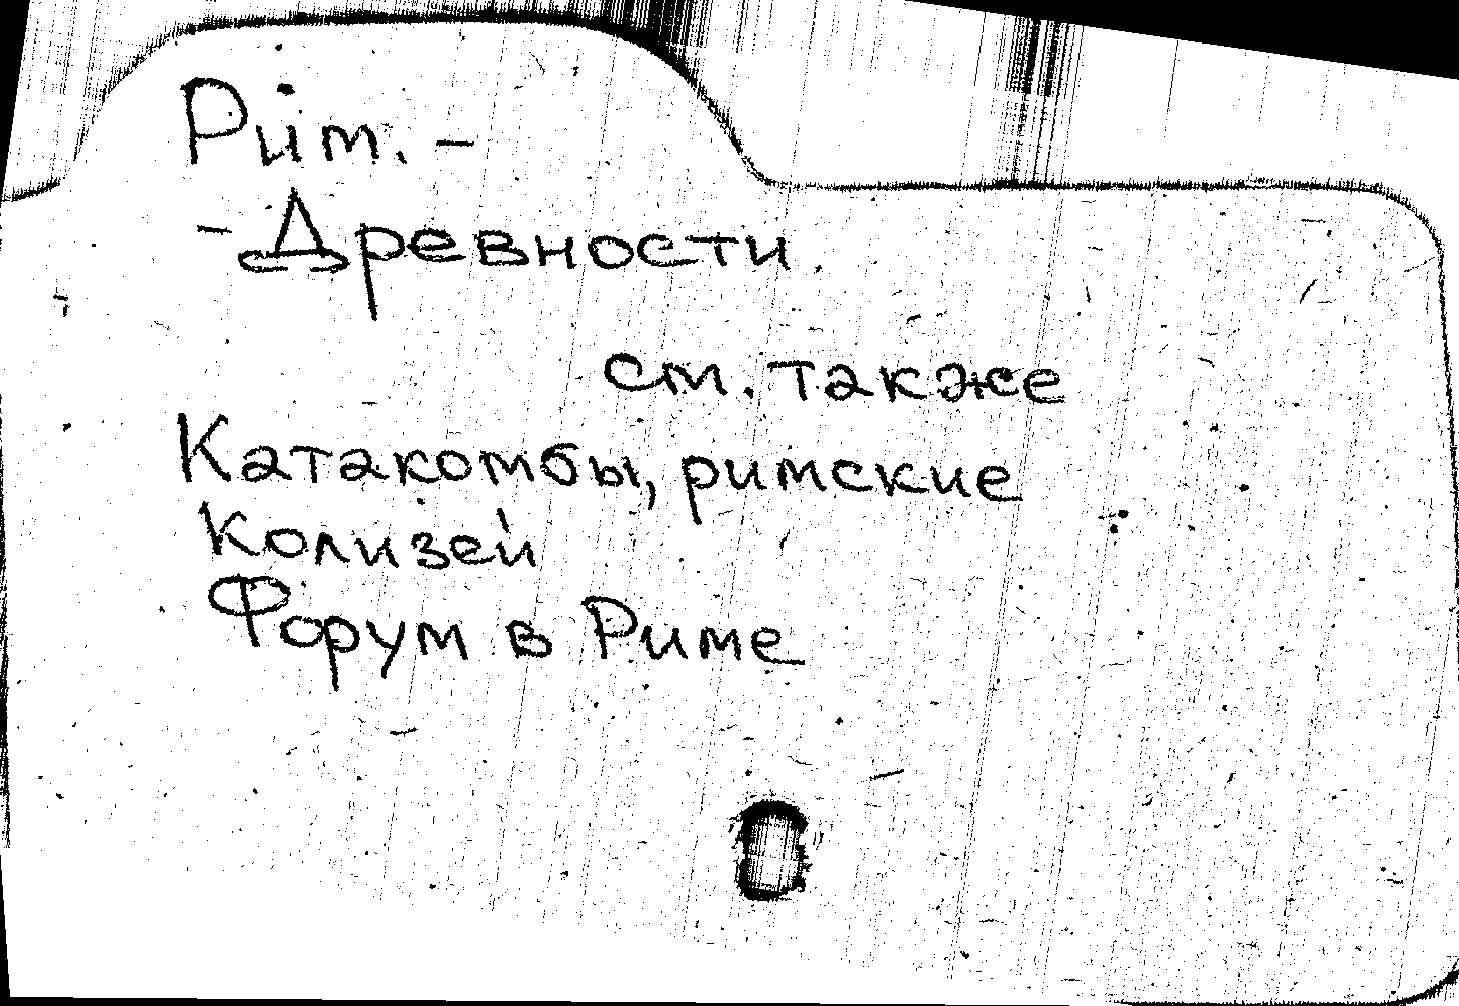 Рим. -
- Древности.
см. также
Катакомбы, римские
Колизей
Форум в Риме